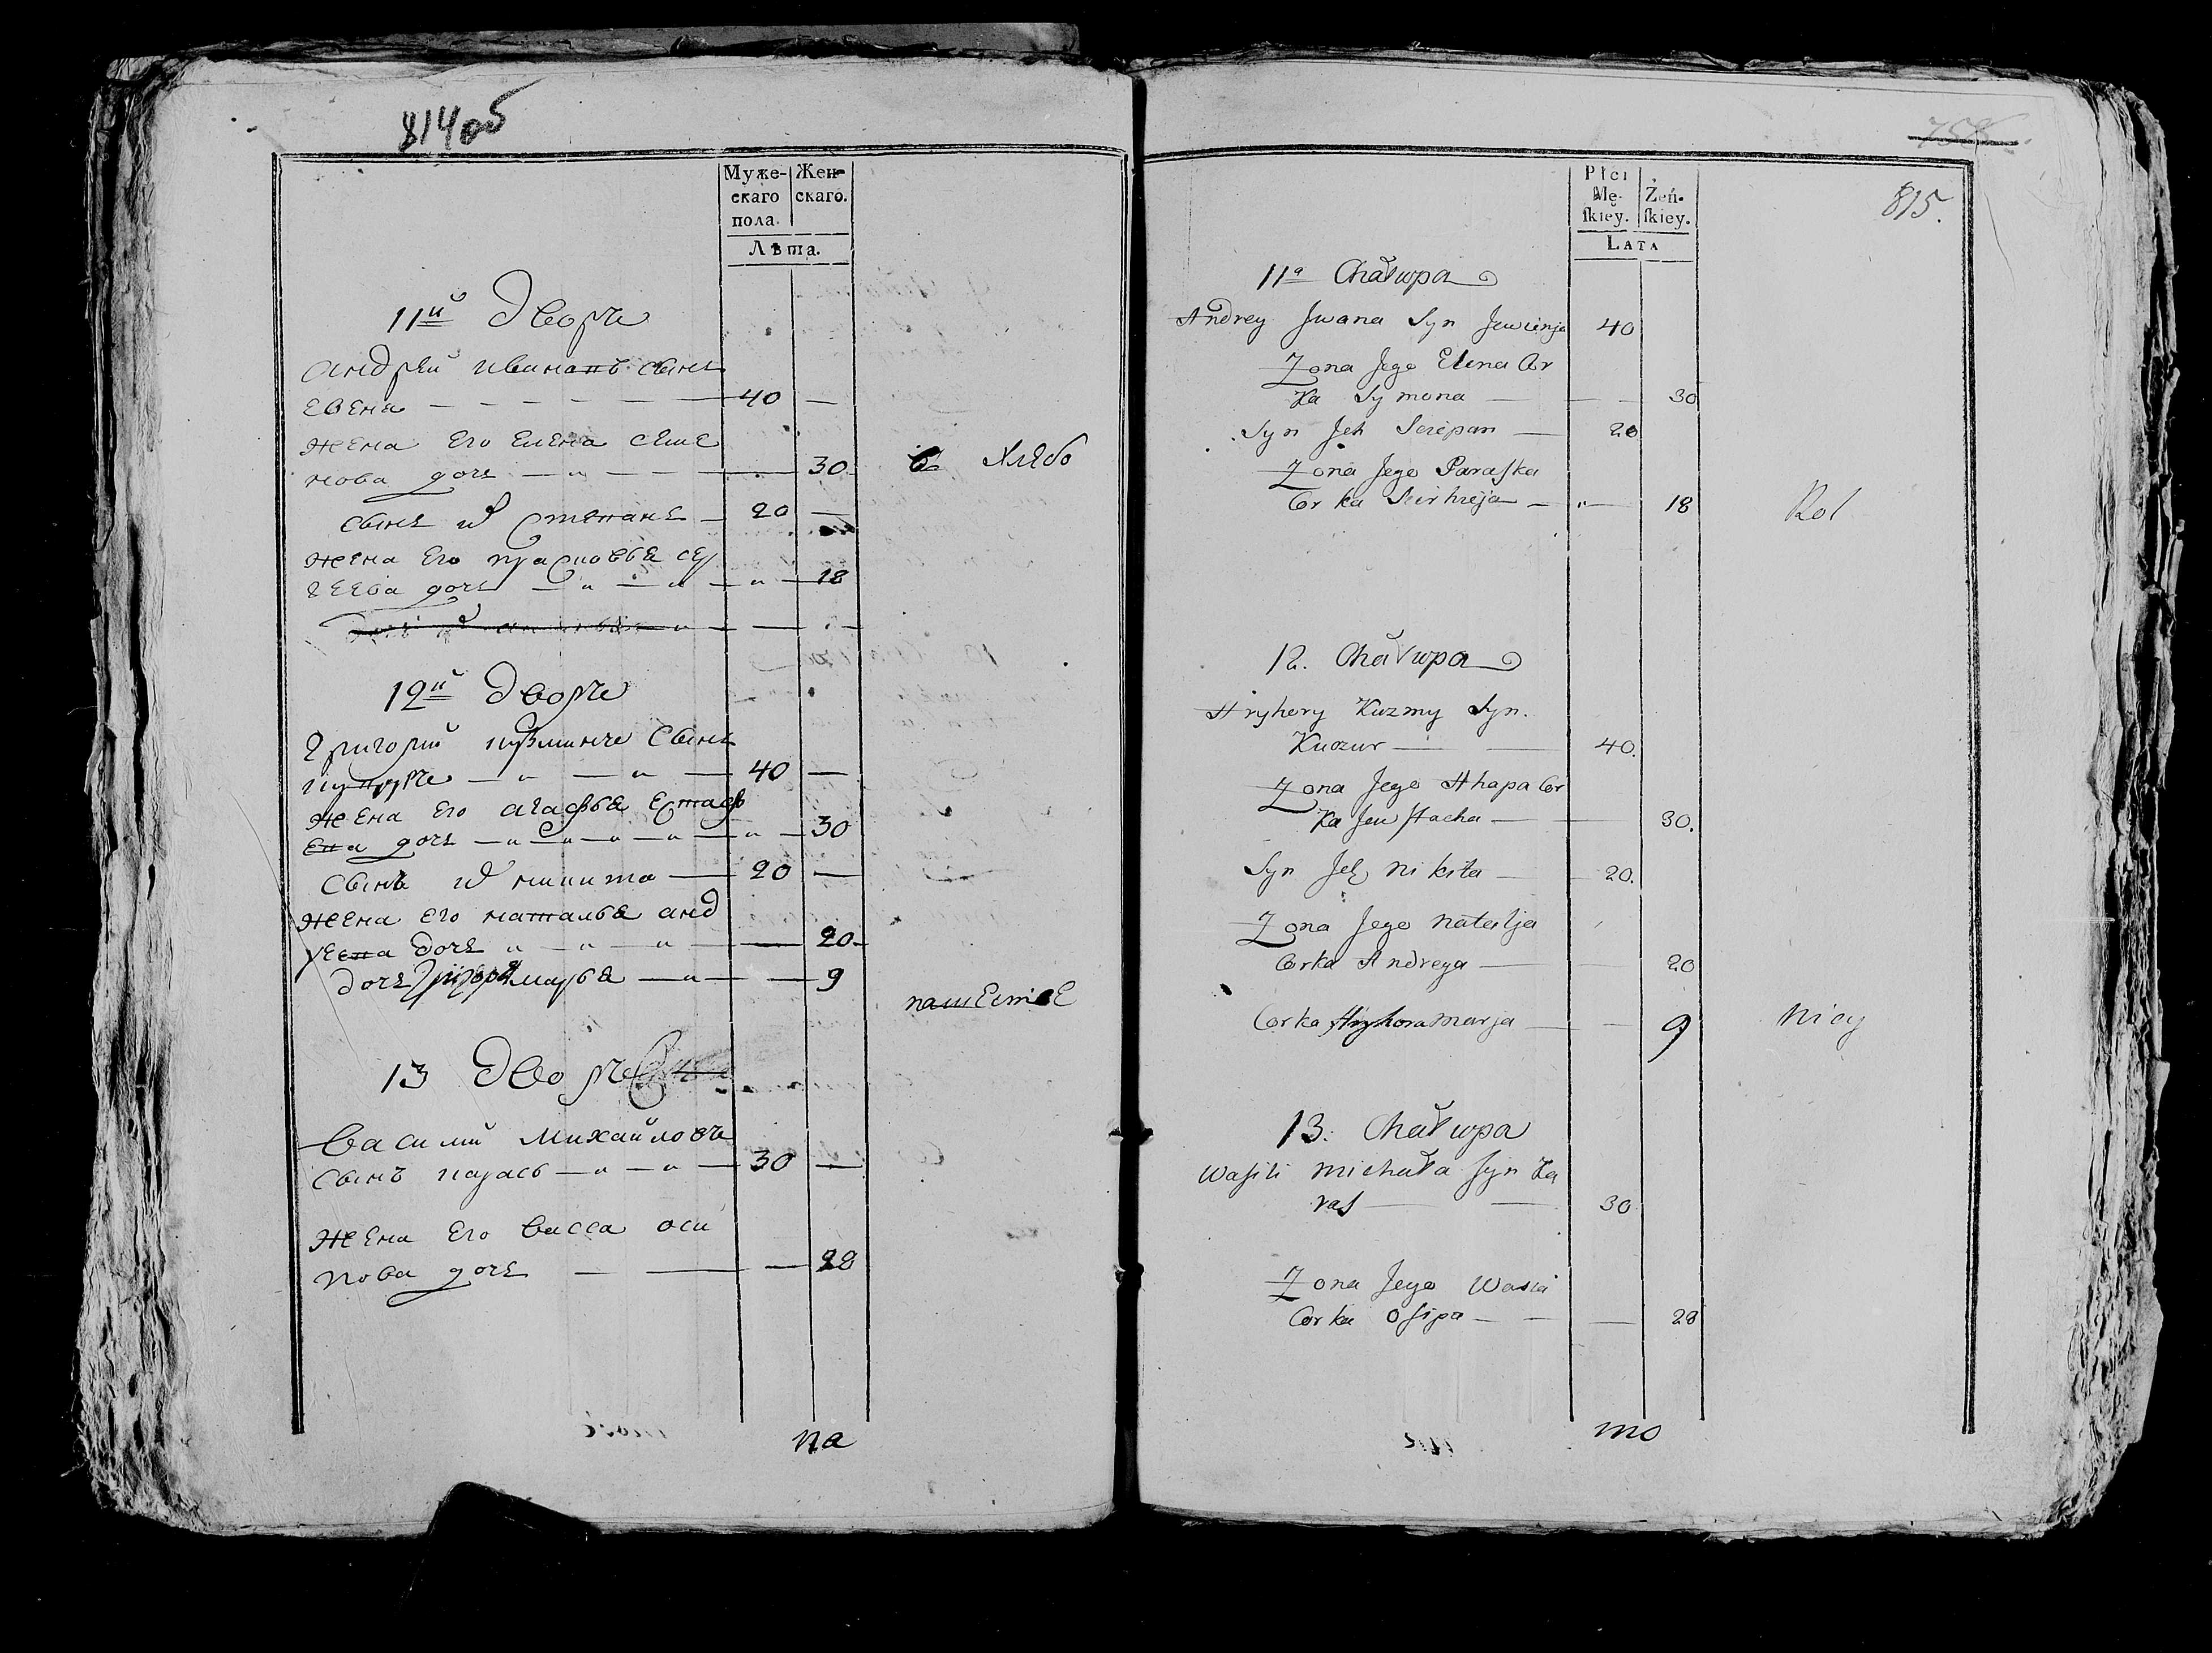 814об
Муже-
скаго
пола.
Жен-
скаго.
Лѣта.
11й Дворъ
Андрей Иванапъ сынъ
Евена 40 —
Жена Его Елена Семе
нова дочь 30
Сынъ их Степанъ 20 —
Жена Его Прасковья Сер
геева дочь 18
12й Дворъ
Григорий Кузминъ Сынъ
40 —
Жена Его Агафья Естаф
Ева дочь 30
Сынъ их Никита 20 —
Жена Его Наталья Анд
реева Дочь 20
Дочь Григорья Марья 9
13 Дворъ
Василий Михайловъ
Сынъ Карась 30 —
Жена Его Васса Оси
пова дочь 28
Хлебо
пашестве
на
758
815.
Płci
Mę-
ſkiey.
Żeń-
ſkiey.
Lata
11a Chałupa
Andrey Jwana Syn Jewienja 40
Zona Jego Elena Cor
ka Symona 30
Syn Jch Sciepan 20
Zona Jego Paraſka
Corka Sierhieja 18
Rol
12. Chałupa
Hryhory Kuzmy Syn.
40.
Zona Jego Ahapa Cor
ka Jewſtacha 30.
Syn Jch Nikita 20.
Zona Jego Natalja
Corka Andreya 20
Corka Hryhora Marja 9
nicy
13. Chałupa
Waſili Michała Syn Ka
ras 30
Zona Jego Wassa
Corka Oſipa 28
mo